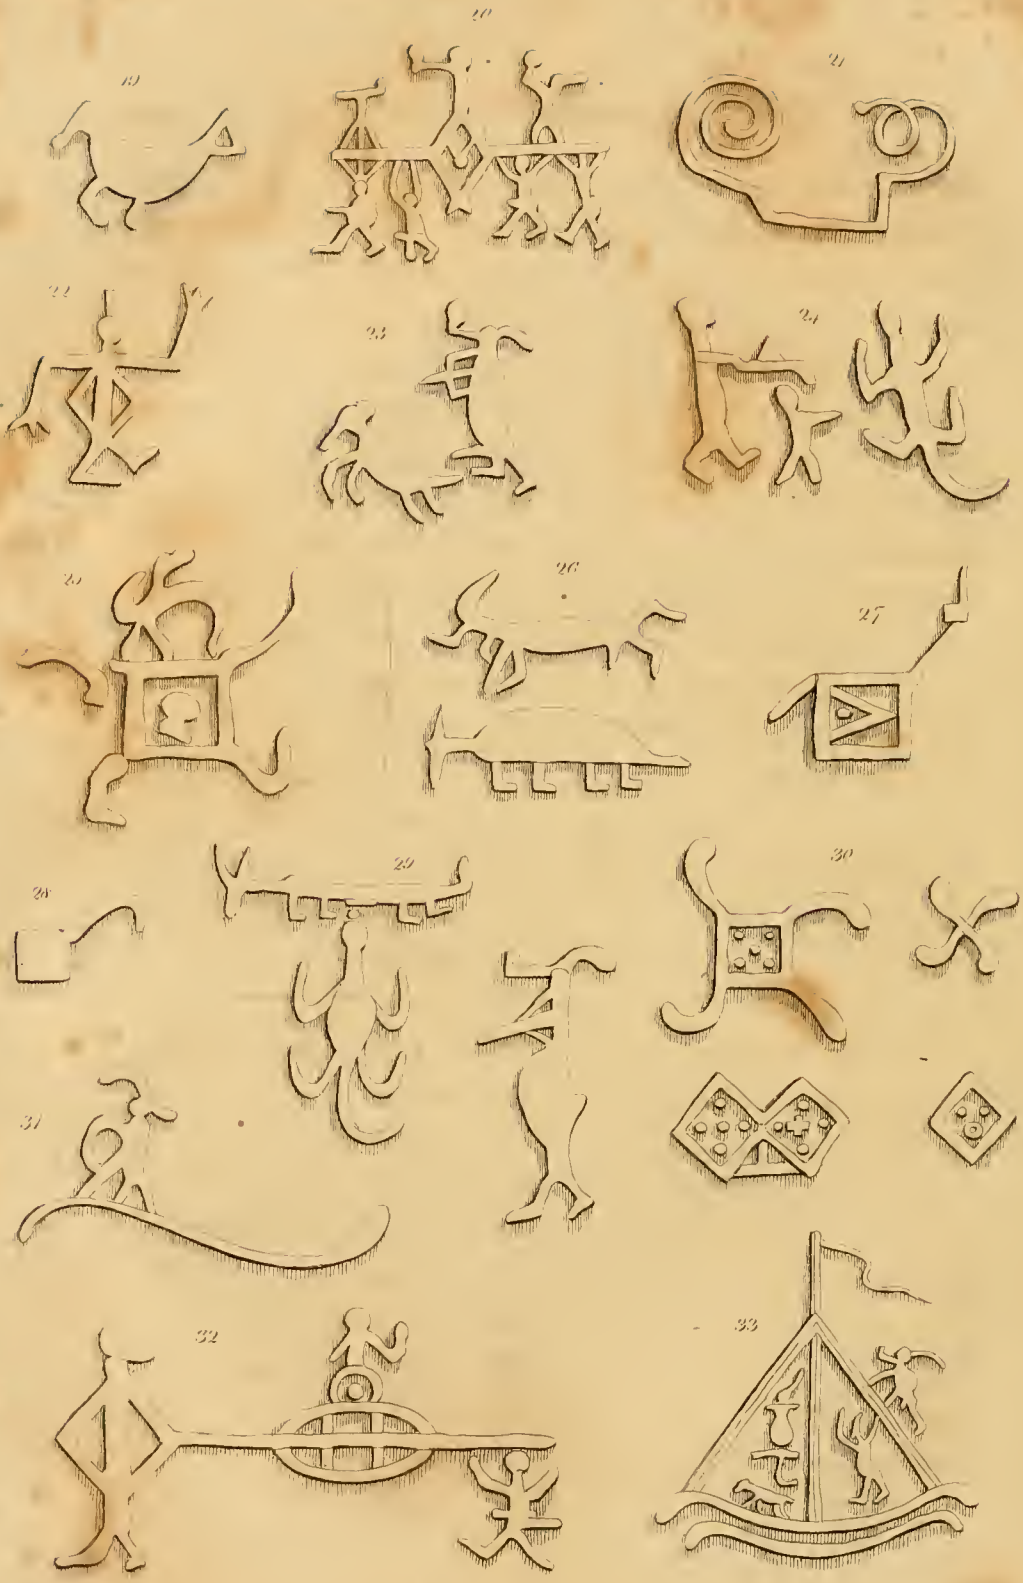 20
19
21
22
23
24
25
26
27
28
29
30
31
32
33